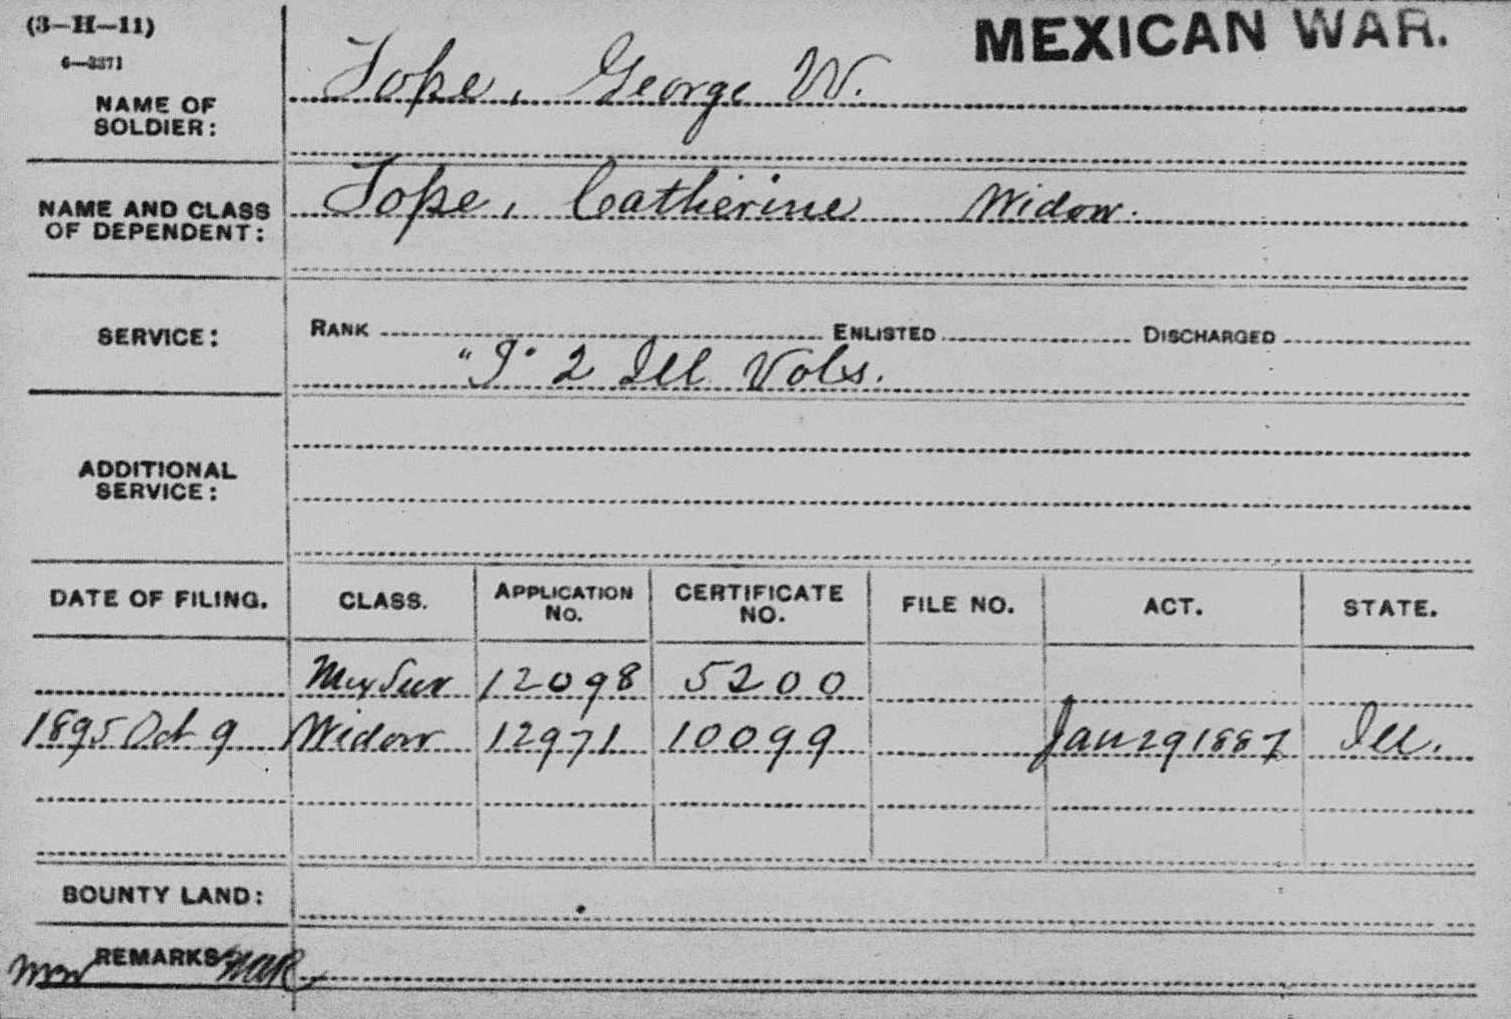 (3—H—11)
MEXICAN WAR.
6—3371
NAME OF SOLDIER:
Tope, George W.
NAME AND CLASS OF DEPENDENT:
Tope, Catherine Widow.
SERVICE:
RANK ENLISTED DISCHARGED
"I" 2 Ill Vols.
ADDITIONAL SERVICE:
DATE OF FILING. CLASS. APPLICATION NO. CERTIFICATE NO. FILE NO. ACT. STATE.
Mex Sur 12098 5200
1895 Oct 9 Widow 12971 10099 Jan 29 1887 Ill.
BOUNTY LAND:
REMARKS